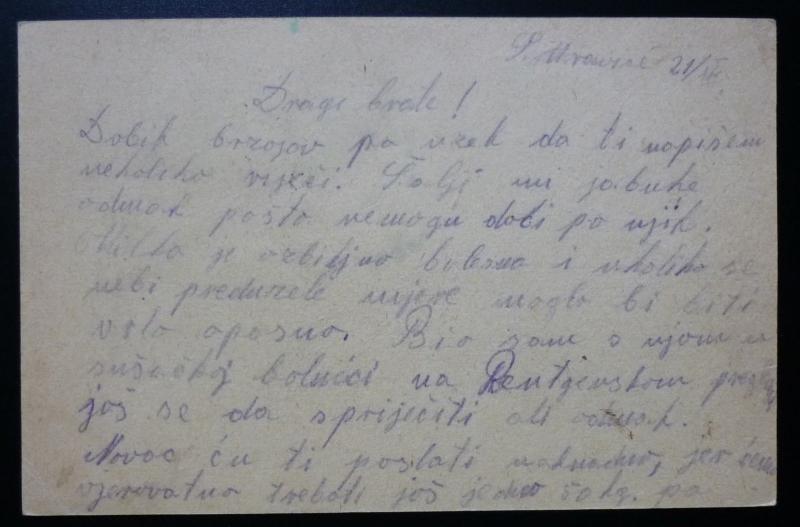 S. Mravinci 21/III.
Dragi brate!
Dobih brzojav pa uzeh da ti napišem
nekoliko riječi. Šalji mi jabuke
odmah pošto nemogu dobi po njih.
Milka je ozbiljno bolesna i ukoliko se
nebi preduzele mjere moglo bi biti
vrlo opasno. Bio sam s njom u
sušačkoj bolnici na Rentgenskom pregledu
još se da spriječiti ali odmah.
Novac ću ti poslati naknadno, jer ćemo
vjerovatno trebati još jedno 50 kg. pa